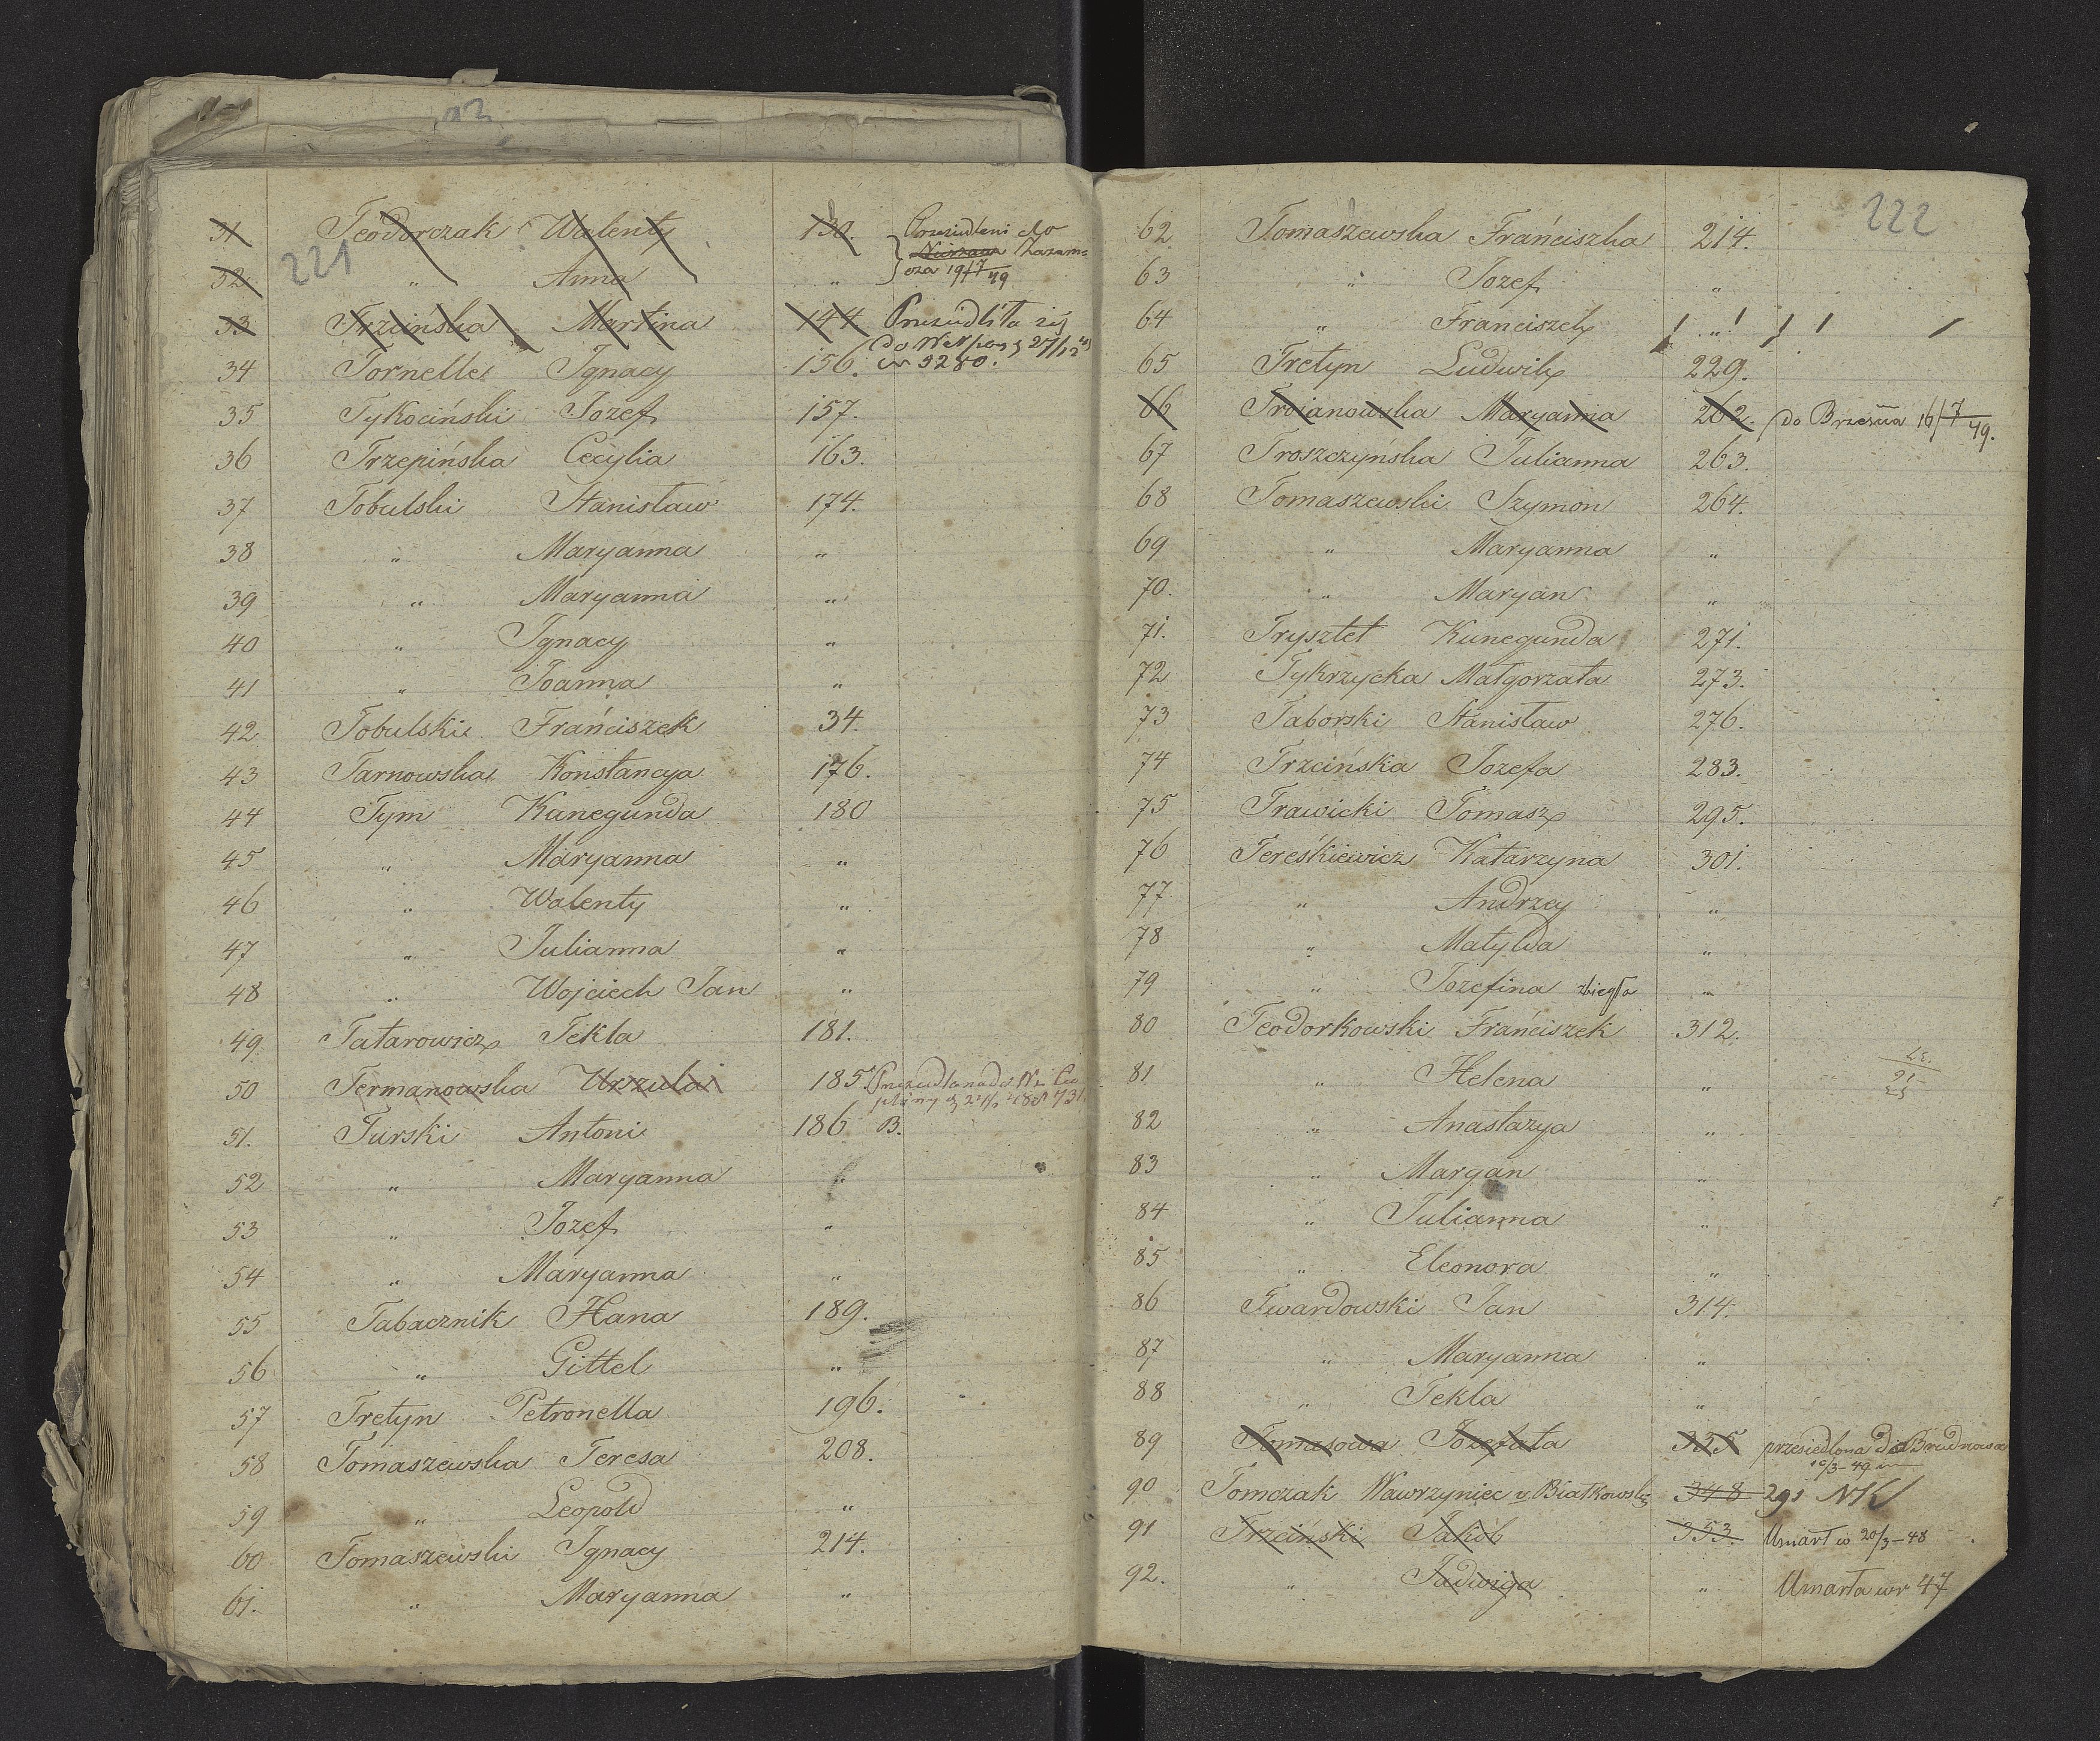 93
221
31 Teodorczak Walenty 130. Przesiedleni do
32 " Anna " 19/7 49
33 Trzcińska Martina 144 Przesiedliła się
do 27/12
34 Tornelle Ignacy 156. 3280.
35 Tykociński Jozef 157.
36 Trzepińska Cecylia 163.
37 Tobulski Stanisław 174.
38 " Maryanna "
39 " Maryanna "
40 " Ignacy "
41 " Joanna "
42 Tobulski Franciszek 34.
43 Tarnowska Konstancya 176.
44 Tym Kunegunda 180
45 " Maryanna "
46 " Walenty "
47 " Julianna "
48 " Wojciech Jan "
49 Tatarowicz Tekla 181.
50 Termanowska Urzula 185.
51. Turski Antoni 186 B.
52 " Maryanna "
53 " Jozef "
54 " Maryanna "
55 Tabacznik Hana 189.
56 " Gittel "
57 Tretyn Petronella 196.
58 Tomaszewska Teresa 208.
59 " Leopold "
60 Tomaszewski Ignacy 214.
61. " Maryanna "
222
62. Tomaszewska Franciszka 214.
63 " Jozef "
64 " Franciszek "
65 Tretyn Ludwik 229.
66 Trojanowska Maryanna 262. do Brzeźna 16/7 49.
67 Troszczyńska Julianna 263.
68 Tomaszewski Szymon 264.
69 " Maryanna "
70. " Maryan "
71. Trysztet Kunegunda 271.
72 Tykrzycka Małgorzata 273.
73 Taborski Stanisław 276.
74 Trzcińska Jozefa 283.
75 Trawicki Tomasz 295.
76 Tereśkiewicz Katarzyna 301.
77 " Andrzey "
78 " Matylda "
79 " Jozefina zbiegła "
80 Teodorkowski Franciszek 312.
81 " Helena "
82 " Anastazya "
83 " Maryan "
84 " Julianna "
85 " Eleonora "
86 Twardowski Jan 314.
87 " Maryanna "
88 " Tekla "
89 Tomasowa Jozefata 335 przesiedlona do Brudnowa
10/3-49
90 Tomczak Wawrzyniec v Białkowski 348 291 NK
91 Trzciński Jakób 353. Umarł w 20/3-48
92. " Jadwiga " Umarła w r 47